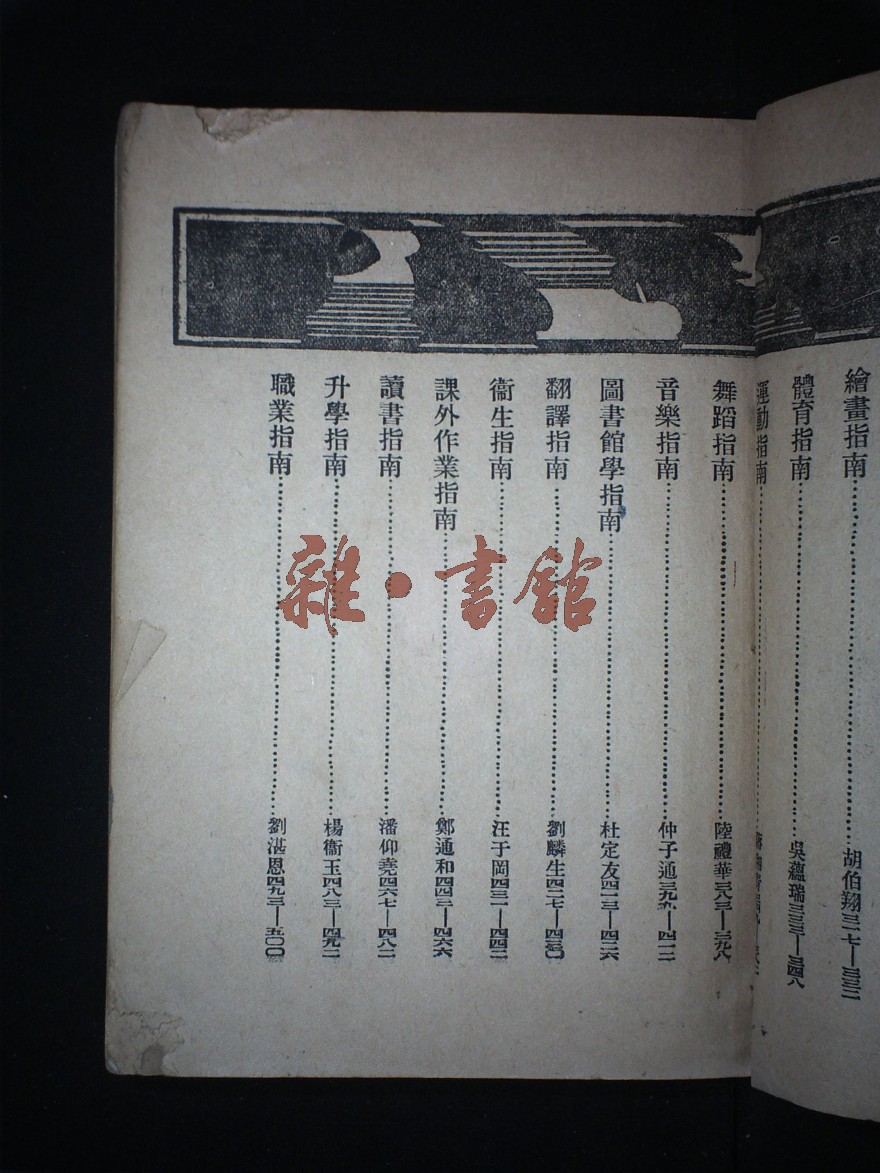 繪畫指南……胡伯翔三一七—三三二
體育指南……吳蘊瑞三三三—三四八
運動指南……
舞蹈指南……陸禮華三八三—三九八
音樂指南……仲子通三九九—四一二
圖書館學指南……杜定友四一三—四二六
翻譯指南……劉麟生四二七—四三〇
衞生指南……汪于岡四三一—四四二
課外作業指南……鄭通和四四三—四六六
讀書指南……潘仰堯四六七—四八二
升學指南……楊衞玉四八三—四九二
職業指南……劉湛恩四九三—五〇〇
雜·書館